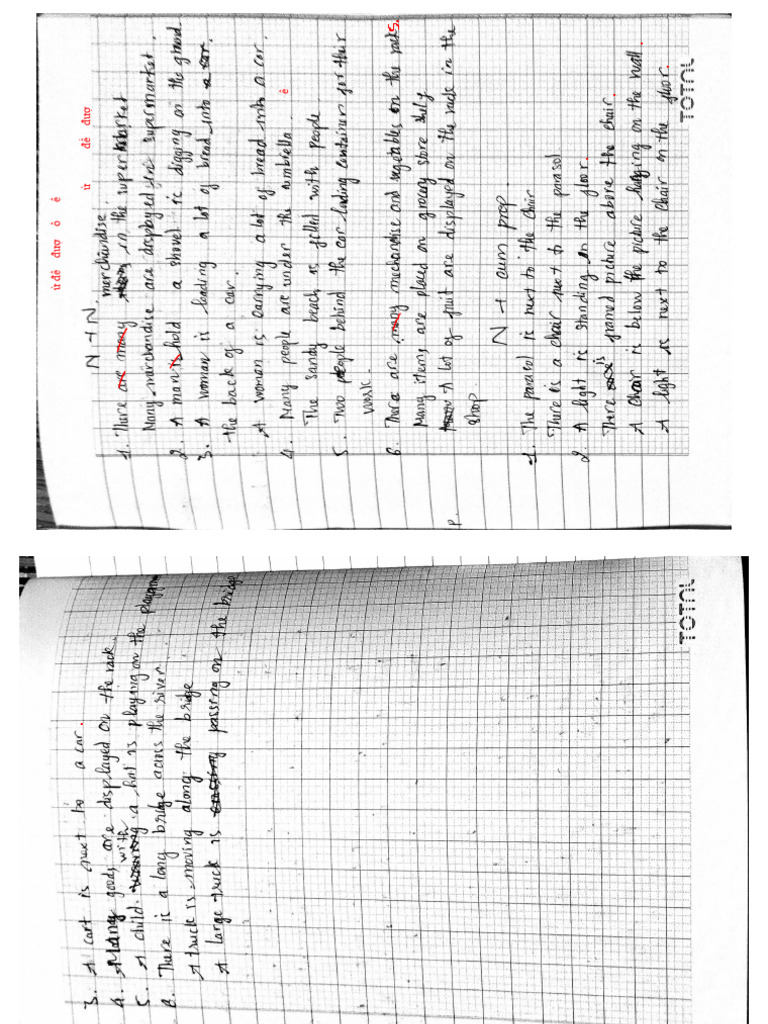 N + N
merchandise.
1. There are many in the supermarket
Many merchandise are displayed supermarket.
2. A man is hold a shovel is digging on the ground.
3. A woman is loading a lot of bread into a car.
the back of a car.
A woman is carrying a lot of bread into a car.
4. Many people are under the umbrella.
The sandy beach is filled with people.
5. Two people behind the car loading container for their
work.
6. There are many mechandise and vegetables on the racks.
Many items are placed on grocery store
A lot of fruit are displayed on the rack in the
shop.
N + cum prep.
1. The parasol is next to the chair
There is a chair next to the parasol.
2. A light is standing on the floor.
There is framed picture above the chair.
A chair is below the picture hanging on the wall.
A light is next to the chair on the floor.
ừ đê đượ ò ê
ừ đê đượ
ê
P.
TOTAL
3. A cart is next to a car.
4. Many goods are displayed on the rack
with
5. A child a hat is playing on the
6. There is a long bridge across the river
A truck is moving along the bridge
A large truck is passing on the bridge
TOTAL